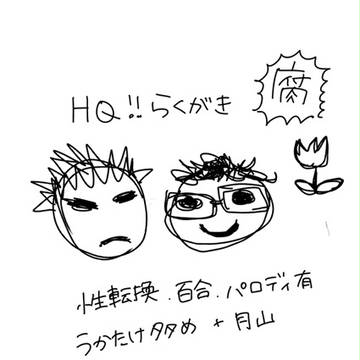 腐
HQ!!らくがき
性転換.百合.パロディ有
うかたけ多め + 月山